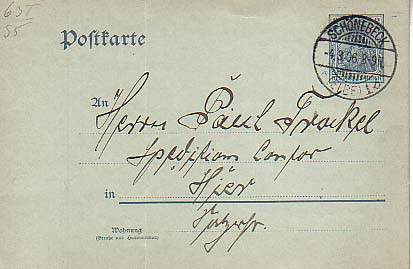 63I
55
Postkarte
SCHÖNEBECK
-4.3.06.8-9N
(ELBE) 1.a
An
Herrn Paul Trockel
Spedition Contor
in Hier
Wohnung
(Straße und Hausnummer)